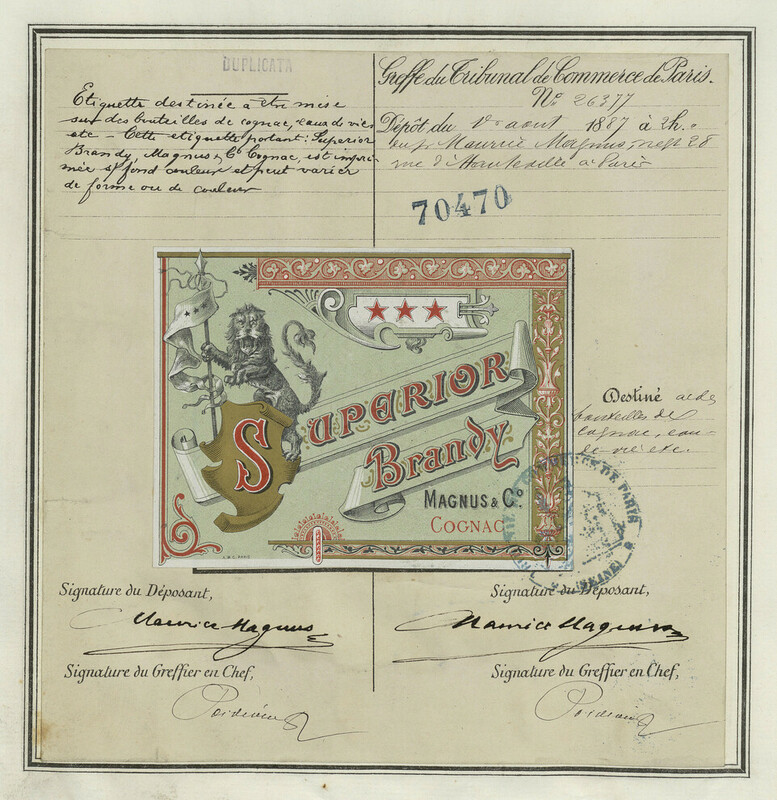 DUPLICATA
Etiquette destinée à être mise
sur des bouteilles de cognac, eaux de vie
etc — Cette etiquette portant: Superior
Brandy, Magnus & Cº Cognac, est impri-
mée s/ fond couleur et peut varier
de forme ou de couleur
Greffe du Tribunal de Commerce de Paris.
Nº 26377
Dépôt du 1er aout 1887 à 2h.
Maurice Magnus, negt 28
rue d'Hauteville à Paris
70470
SUPERIOR
Brandy
MAGNUS & Cº
COGNAC
Destiné à des
bouteilles de
cognac, eau
de vie etc.
DE PARIS
(SEINE)
Signature du Déposant,
Signature du Déposant,
Maurice Magnus
Maurice Magnus
Signature du Greffier en Chef,
Signature du Greffier en Chef,